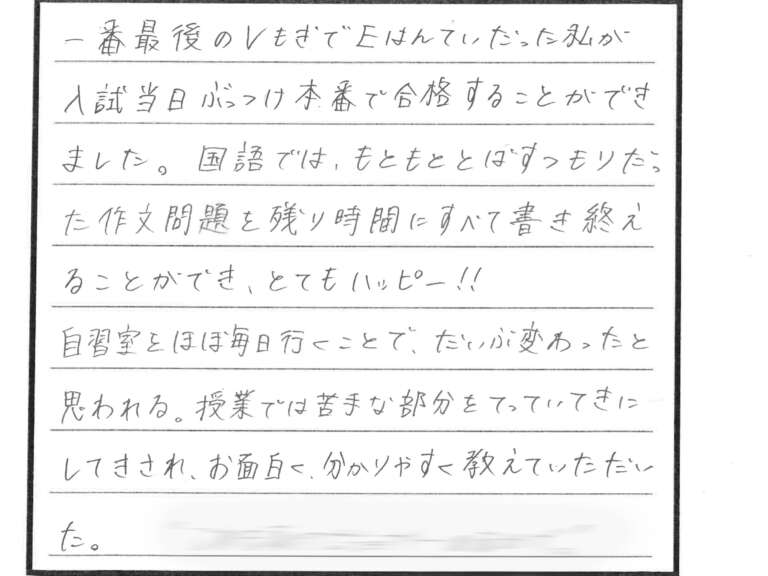 一番最後のVもぎでEはんていだった私が
入試当日ぶっつけ本番で合格することができ
ました。国語では、もともととばすつもりだっ
た作文問題を残り時間にすべて書き終え
ることができ、とてもハッピー!!
自習室をほぼ毎日行くことで、だいぶ変わったと
思われる。授業では苦手な部分をてっていてきに
してきされ、お面白く、分かりやすく教えていただい
た。